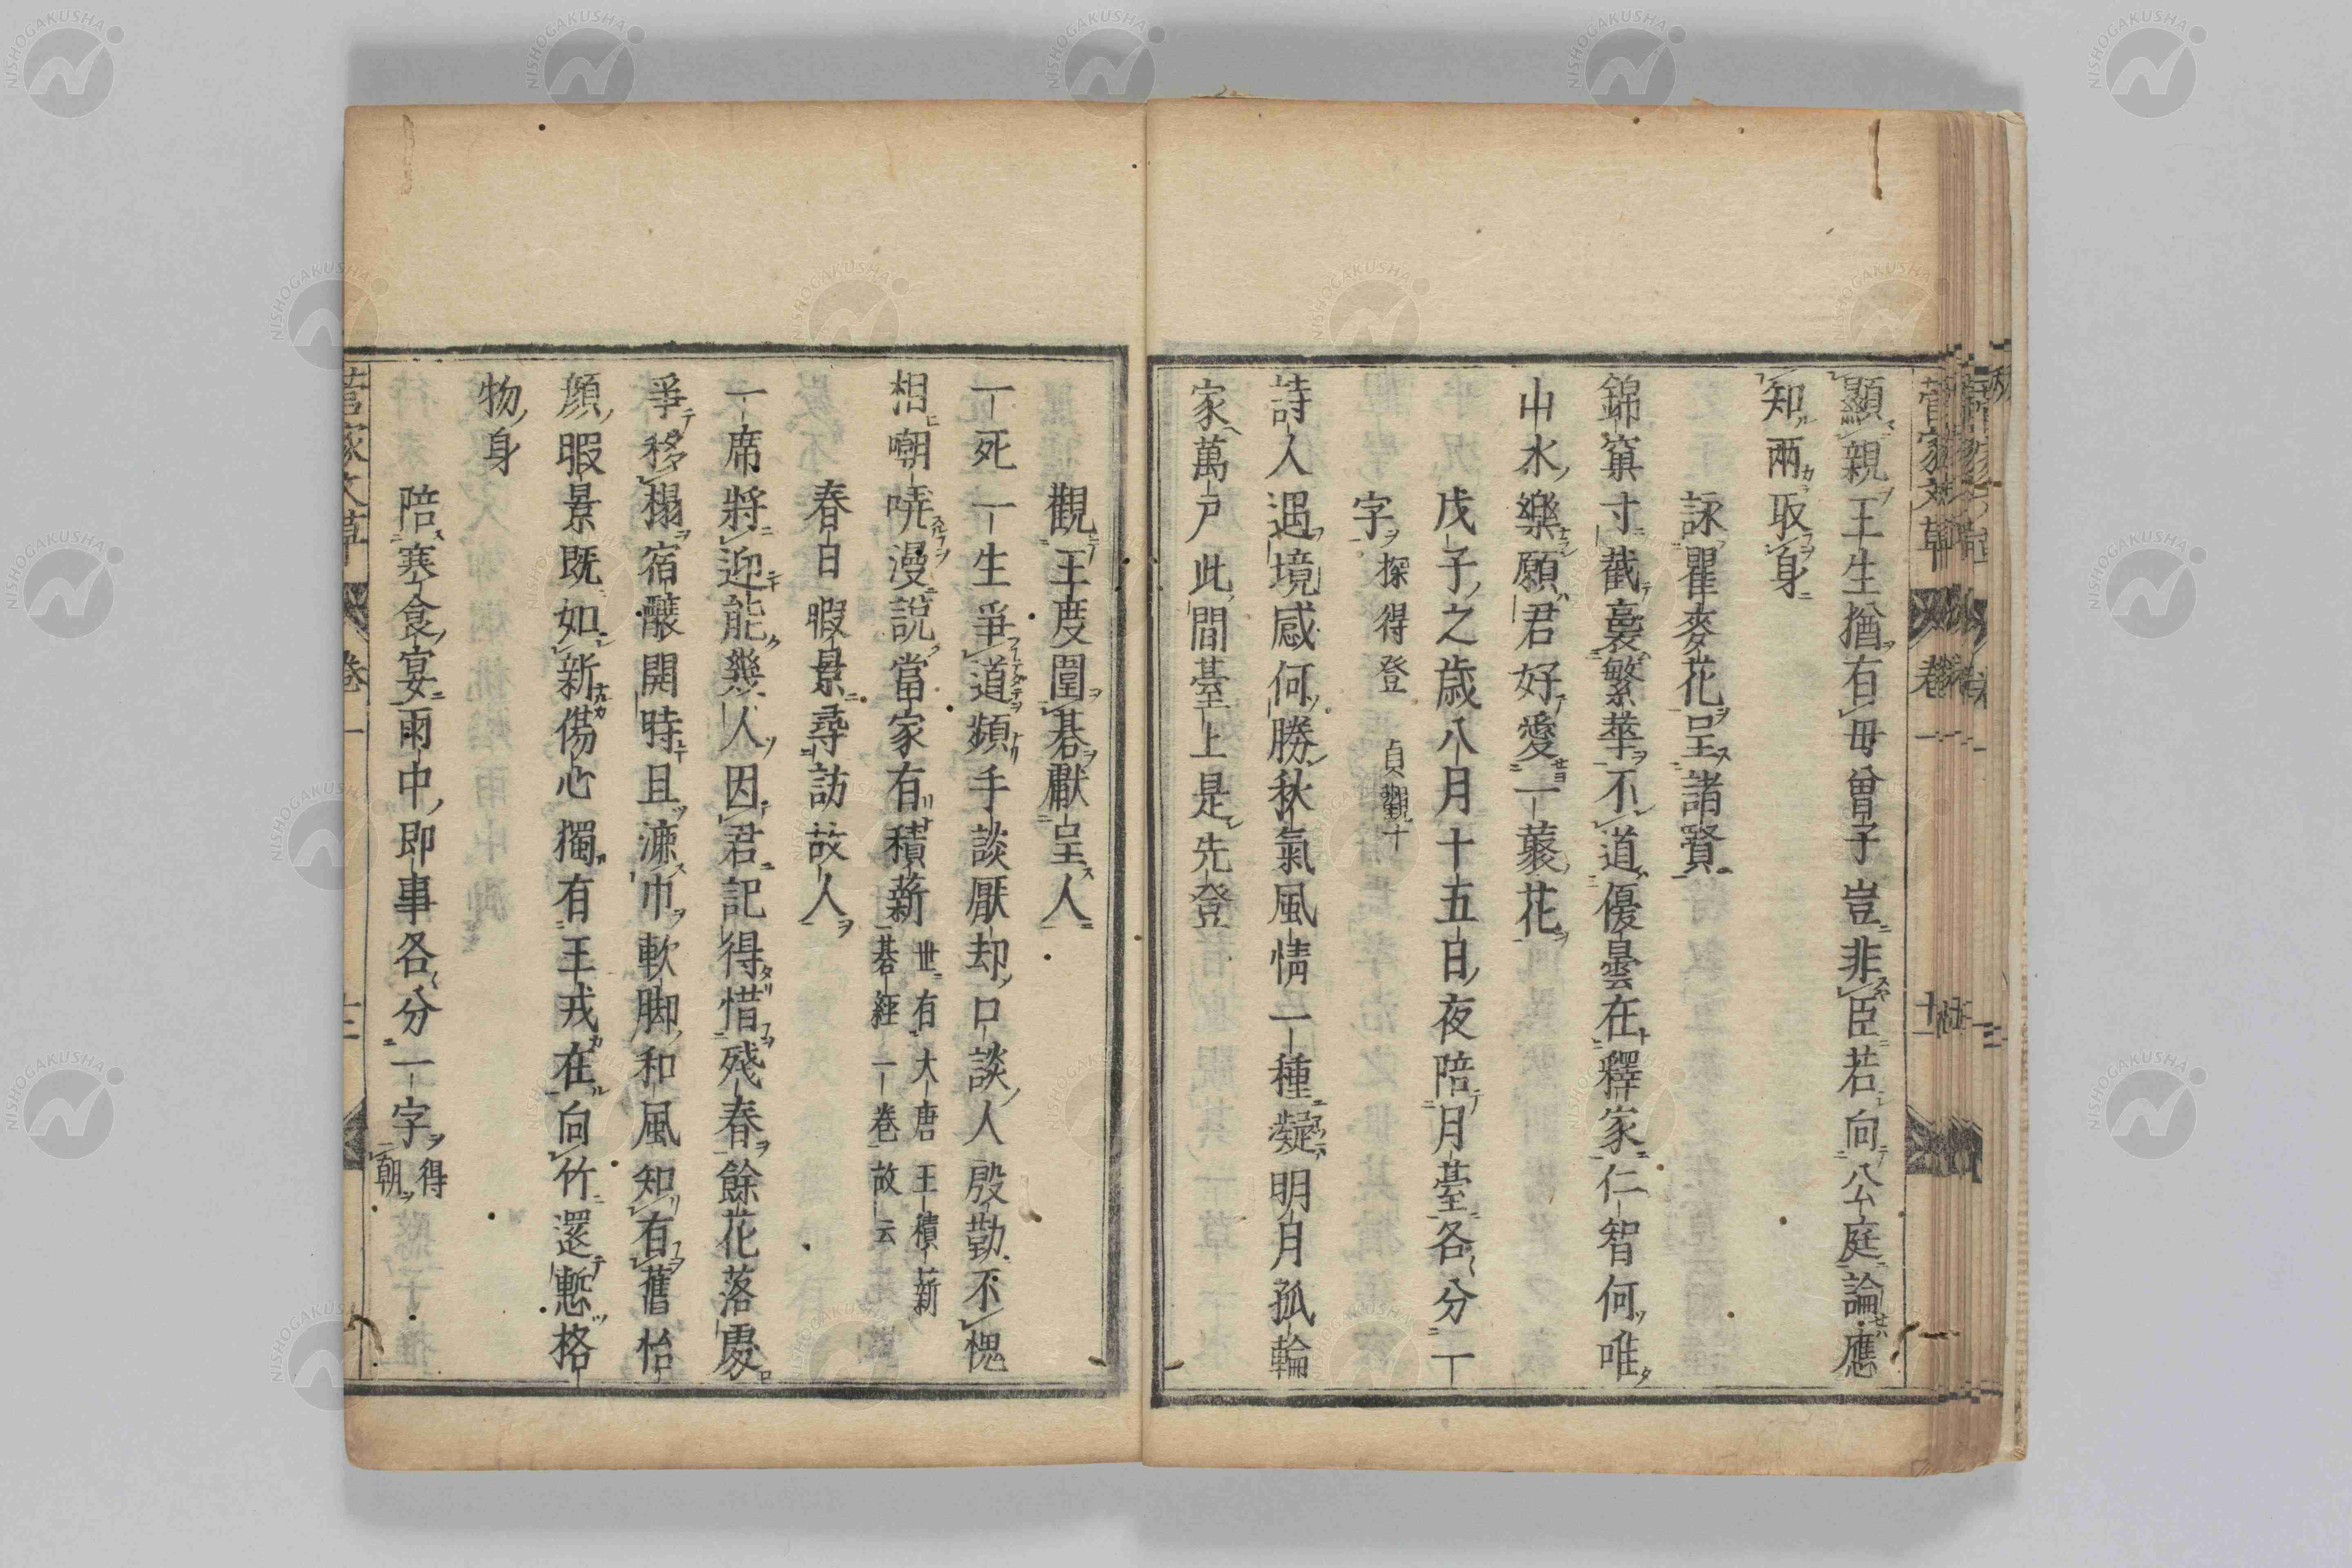 顯親王生猶有母曾子豈非臣若向公庭論應
知兩取身
詠瞿麥花呈諸賢
錦窠寸截裹繁華不道優曇在釋家仁智何唯
山水樂願君好愛一叢花
戊子之歳八月十五日夜陪月臺各分一
字探得登 貞觀十
詩人遇境感何勝秋氣風情一種凝明月孤輪
家萬戸此間臺上是先登
觀王度圍碁獻呈人
一死一生爭道頻手談厭却口談人殷勤不愧
相嘲哢漫説當家有積薪
世有大唐王積薪
碁經一卷故云
春日暇景尋訪故人
一席將迎能幾人因君記得惜殘春餘花落處
爭移榻宿釀開時且漉巾軟脚和風知有舊怡
顔暇景既如新傷心獨有王戎在向竹還慙格
物身
陪寒食宴雨中即事各分一字
得
朝
菅家文草 卷一